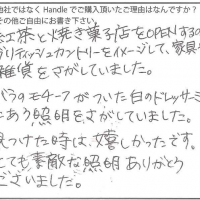 他社ではなく Handle でご購入頂いたご理由はなんですか？
その他ご自由にお書き下さい。
紅茶と焼き菓子店をOPENするの
ブリティッシュカントリーをイメージして、家具や
雑貨をさがしていました。
バラのモチーフがついた白のドレッサーに
にあう照明をさがしていました。
見つけた時は、嬉しかったです。
とても素敵な照明ありがとう
ございました。